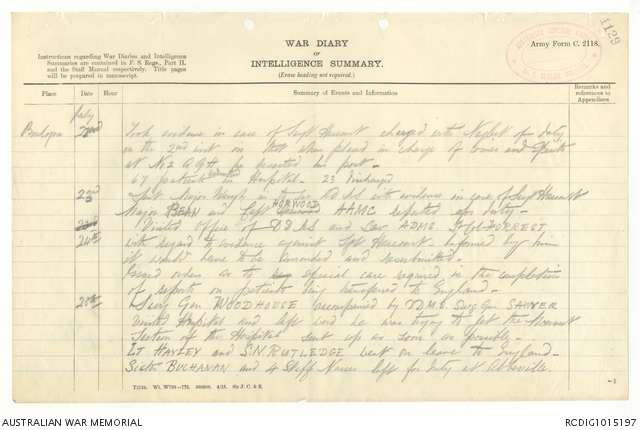 1129
WAR DIARY
or
INTELLIGENCE SUMMARY.
(Erase heading not required.)
Army Form C. 2118.
Instructions regarding War Diaries and Intelligence
Summaries are contained in F. S. Regs., Part II.
and the Staff Manual respectively. Title pages
will be prepared in manuscript.
Place Date Hour Summary of Events and Information Remarks and
references to
Appendices
July
Boulogne 22nd Took evidence in case of Sergt Harcourt charged with Neglect of Duty
on the 2nd inst in that when placed in charge of Stores and
at No 2 AGH he deserted his post -
67 patients admitted in Hospital. 23 discharged
23rd Major Waugh in to see DDMS with evidence in case of Sergt Harcourt
Major BEAN and Capt HORWOOD AAMC reported for duty -
24th Visited office of DDMS and saw ADMS Col FORREST
with regard to evidence against Sgt Harcourt informed by him
it would have to be amended and resubmitted.
Issued orders as to special care required in the completion
of reports on patients being transferred to England -
25th Surg Gen WOODHOUSE accompanied by DDMS Surg Gen SAWYER
visited Hospital and left word he was trying to get the
Section of the Hospital sent up as soon as possible -
Lt HAYLEY and S.N RUTLEDGE went on leave to England -
Sister BUCHANAN and 4 Staff Nurses left for duty at Abbeville.
T2134. Wt. W708—776. 500000. 4/15. Sir J. C. & S.
AUSTRALIAN WAR MEMORIAL
RCDIG1015197